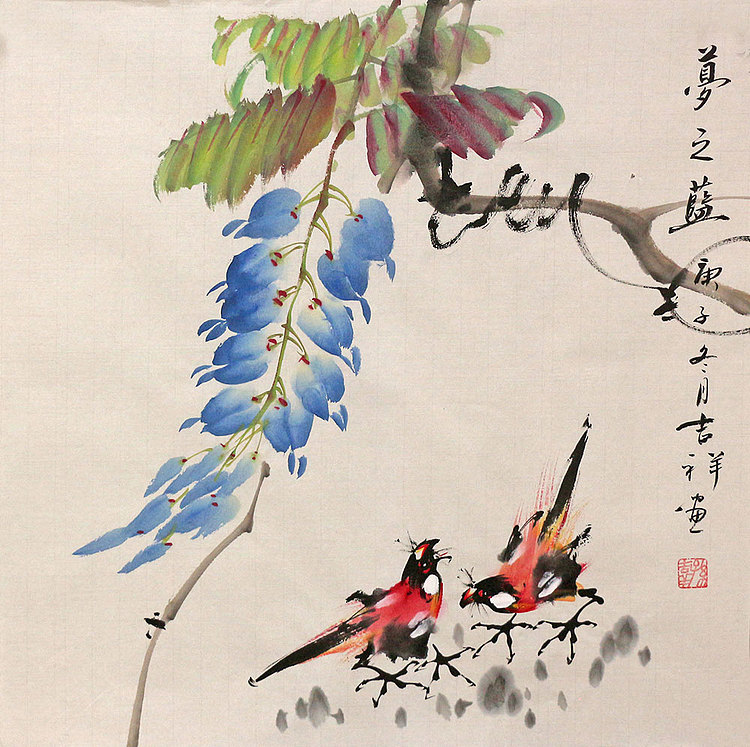 夢之藍庚子冬月吉祥畫